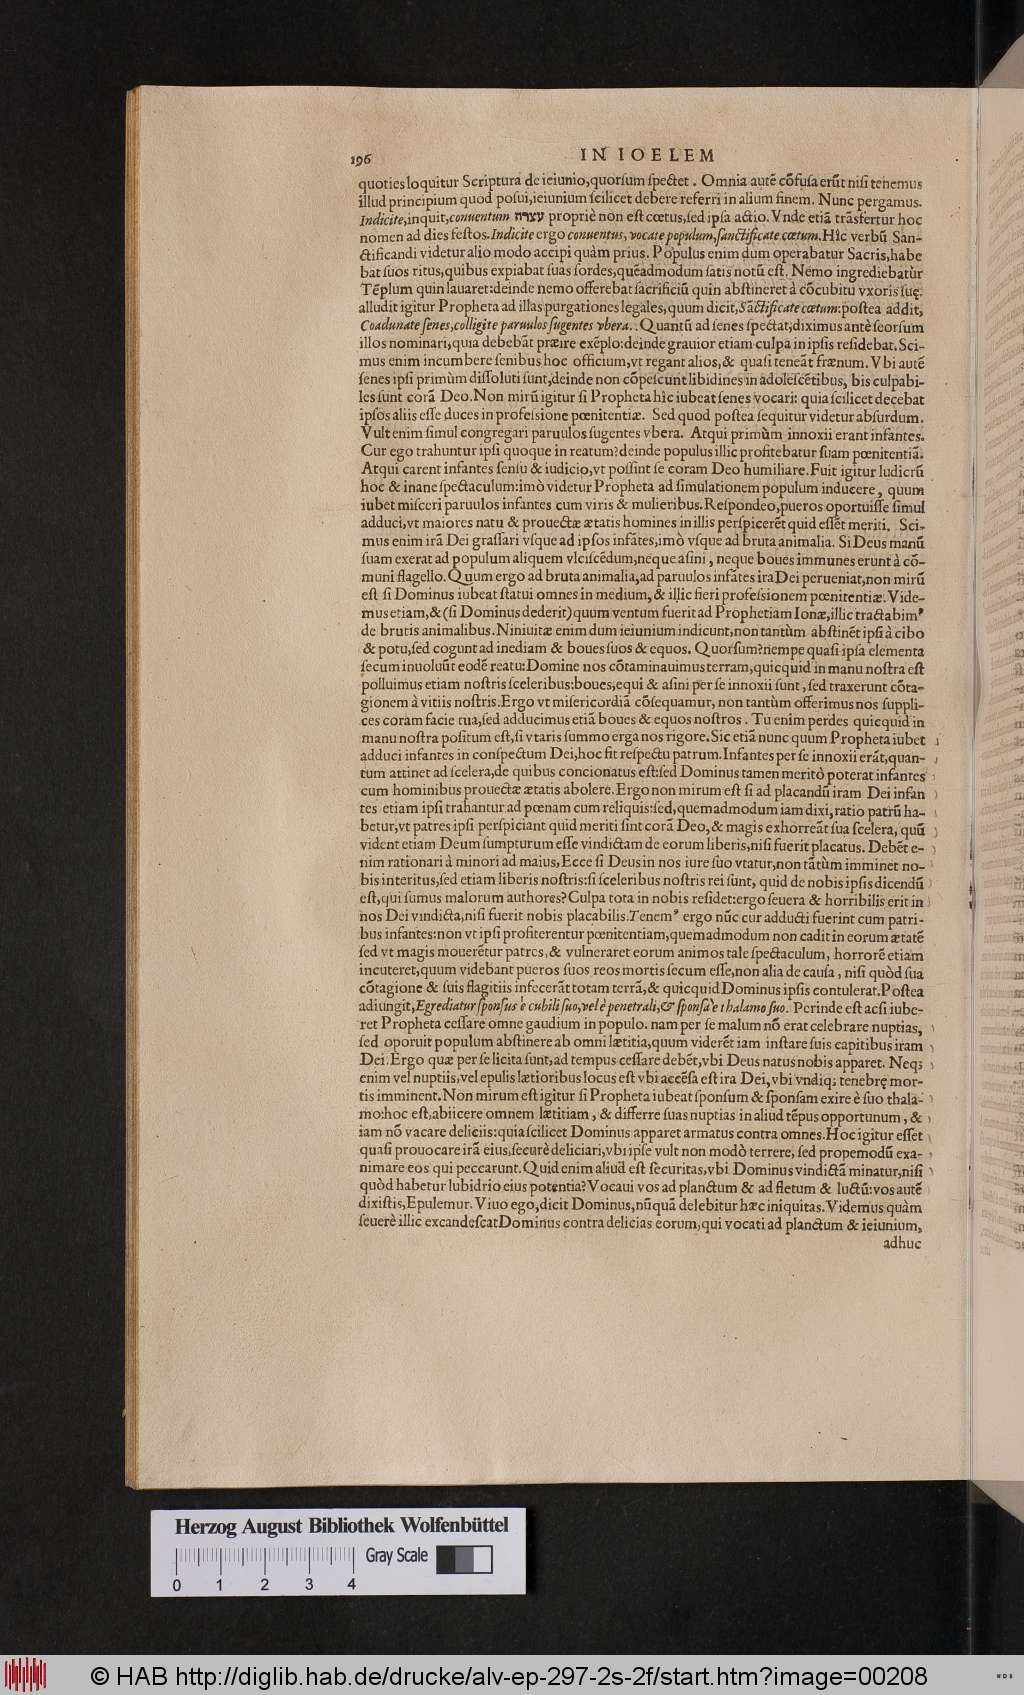 196
IN IOELEM
quoties loquitur Scriptura de ieiunio,quorſum ſpectet. Omnia autē cōfuſa erūt niſi tenemus
illud principium quod poſui,ieiunium ſcilicet debere referri in alium finem. Nunc pergamus.
Indicite,inquit,conuentum עצרה propriè non eſt cœtus,ſed ipſa actio.Vnde etiā trāſfertur hoc
nomen ad dies feſtos.Indicite ergo conuentus, vocate populum,ſanctificate cœtum.Hîc verbū San-
ctificandi videtur alio modo accipi quàm prius. Populus enim dum operabatur Sacris,habe
bat ſuos ritus,quibus expiabat ſuas ſordes,quēadmodum ſatis notū eſt. Nemo ingrediebatur
Tēplum quin lauaret:deinde nemo offerebat ſacrificiū quin abſtineret à cōcubitu vxoris ſuę.
alludit igitur Propheta ad illas purgationes legales,quum dicit,Sāctificate cœtum:poſtea addit,
Coadunate ſenes,colligite paruulos ſugentes vbera. .Quantū ad ſenes ſpectat,diximus antè ſeorſum
illos nominari,quia debebāt præire exēplo:deinde grauior etiam culpa in ipſis reſidebat.Sci-
mus enim incumbere ſenibus hoc officium,vt regant alios,& quaſi teneāt frænum. Vbi autē
ſenes ipſi primùm diſſoluti ſunt,deinde non cōpeſcunt libidines in adoleſcētibus, bis culpabi-
les ſunt corā Deo.Non mirū igitur ſi Propheta hîc iubeat ſenes vocari: quia ſcilicet decebat
ipſos aliis eſſe duces in profeſsione pœnitentiæ. Sed quod poſtea ſequitur videtur abſurdum.
Vult enim ſimul congregari paruulos ſugentes vbera. Atqui primùm innoxii erant infantes.
Cur ego trahuntur ipſi quoque in reatum?deinde populus illic profitebatur ſuam pœnitentiā.
Atqui carent infantes ſenſu & iudicio,vt poſſint ſe coram Deo humiliare.Fuit igitur ludicrū
hoc & inane ſpectaculum:imò videtur Propheta ad ſimulationem populum inducere, quum
iubet miſceri paruulos infantes cum viris & mulieribus.Reſpondeo,pueros oportuiſſe ſimul
adduci,vt maiores natu & prouectæ ætatis homines in illis perſpicerēt quid eſſēt meriti. Sci-
mus enim irā Dei graſſari vſque ad ipſos infātes,imò vſque ad bruta animalia. Si Deus manū
ſuam exerat ad populum aliquem vlciſcēdum,neque aſini, neque boues immunes erunt à cō-
muni flagello.Quum ergo ad bruta animalia,ad paruulos infātes ira Dei perueniat,non mirū
eſt ſi Dominus iubeat ſtatui omnes in medium, & illic fieri profeſsionem pœnitentiæ.Vide-
mus etiam,&(ſi Dominus dederit)quum ventum fuerit ad Prophetiam Ionæ,illic tractabimꝰ
de brutis animalibus.Niniuitæ enim dum ieiunium indicunt,non tantùm abſtinēt ipſi à cibo
& potu,ſed cogunt ad inediam & boues ſuos & equos. Quorſum?nempe quaſi ipſa elementa
ſecum inuoluūt eodē reatu:Domine nos cōtaminauimus terram,quicquid in manu noſtra eſt
polluimus etiam noſtris ſceleribus:boues,equi & aſini per ſe innoxii ſunt, ſed traxerunt cōta-
gionem à vitiis noſtris.Ergo vt miſericordiā cōſequamur, non tantùm offerimus nos ſuppli-
ces coram facie tua,ſed adducimus etiā boues & equos noſtros. Tu enim perdes quicquid in
manu noſtra poſitum eſt,ſi vtaris ſummo erga nos rigore.Sic etiā nunc quum Propheta iubet
adduci infantes in conſpectum Dei,hoc fit reſpectu patrum.Infantes per ſe innoxii erāt,quan-
tum attinet ad ſcelera,de quibus concionatus eſt:ſed Dominus tamen meritò poterat infantes
cum hominibus prouectæ ætatis abolere.Ergo non mirum eſt ſi ad placandū iram Dei infan
tes etiam ipſi trahantur ad pœnam cum reliquis:ſed,quemadmodum iam dixi,ratio patrū ha-
betur,vt patres ipſi perſpiciant quid meriti ſint corā Deo,& magis exhorreāt ſua ſcelera, quū
vident etiam Deum ſumpturum eſſe vindictam de eorum liberis,niſi fuerit placatus. Debēt e-
nim rationari à minori ad maius,Ecce ſi Deus in nos iure ſuo vtatur,non tātùm imminet no-
bis interitus,ſed etiam liberis noſtris:ſi ſceleribus noſtris rei ſunt, quid de nobis ipſis dicendū
eſt,qui ſumus malorum authores?Culpa tota in nobis reſidet:ergo ſeuera & horribilis erit in
nos Dei vindicta,niſi fuerit nobis placabilis.Tenemꝰ ergo nūc cur adducti fuerint cum patri-
bus infantes:non vt ipſi profiterentur pœnitentiam,quemadmodum non cadit in eorum ætatē
ſed vt magis mouerētur patres,& vulneraret eorum animos tale ſpectaculum, horrorē etiam
incuteret,quum videbant pueros ſuos reos mortis ſecum eſſe,non alia de cauſa, niſi quòd ſua
cōtagione & ſuis flagitiis infecerāt totam terrā,& quicquid Dominus ipſis contulerat.Poſtea
adiungit,Egrediatur ſponſus è cubili ſuo,vel è penetrali,& ſponſa è thalamo ſuo. Perinde eſt acſi iube-
ret Propheta ceſſare omne gaudium in populo. nam per ſe malum nō erat celebrare nuptias,
ſed oporuit populum abſtinere ab omni lætitia,quum viderēt iam inſtare ſuis capitibus iram
Dei.Ergo quæ per ſe licita ſunt,ad tempus ceſſare debēt,vbi Deus natus nobis apparet. Neqꝫ
enim vel nuptiis,vel epulis lætioribus locus eſt vbi accēſa eſt ira Dei, vbi vndiqꝫ tenebrę mor-
tis imminent.Non mirum eſt igitur ſi Propheta iubeat ſponſum & ſponſam exire è ſuo thala-
mo:hoc eſt,abiicere omnem lætitiam, & differre ſuas nuptias in aliud tēpus opportunum, &
iam nō vacare deliciis:quia ſcilicet Dominus apparet armatus contra omnes.Hoc igitur eſſet
quaſi prouocare irā eius,ſecurè deliciari,vbi ipſe vult non modò terrere, ſed propemodū exa-
nimare eos qui peccarunt.Quid enim aliud eſt ſecuritas,vbi Dominus vindictā minatur,niſi
quòd habetur lubidrio eius potentia?Vocaui vos ad planctum & ad fletum & luctū:vos autē
dixiſtis,Epulemur.Viuo ego,dicit Dominus,nūquā delebitur hæc iniquitas.Videmus quàm
ſeuerè illic excandeſcat Dominus contra delicias eorum,qui vocati ad planctum & ieiunium,
adhuc
Herzog August Bibliothek Wolfenbüttel
Gray Scale
0 1 2 3 4
© HAB http://diglib.hab.de/drucke/alv-ep-297-2s-2f/start.htm?image=00208